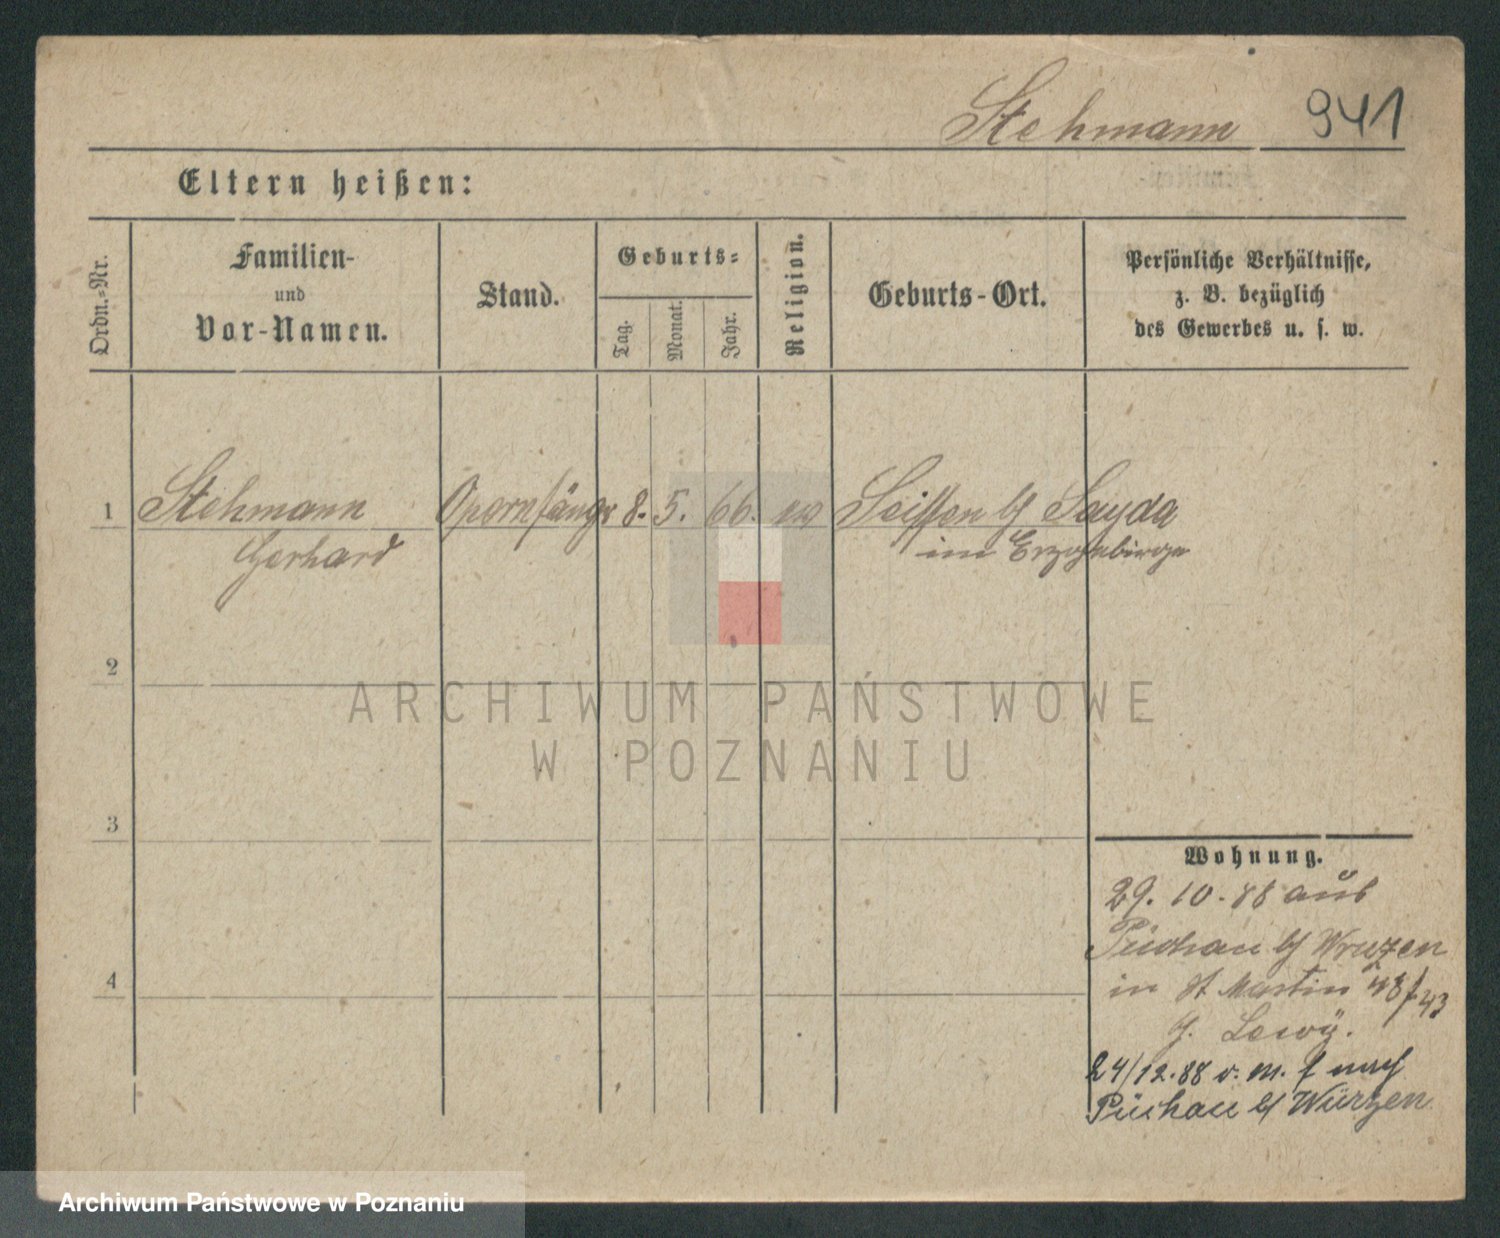 Stehmann 941
Eltern heißen:
Ordn.-Nr.
Familien-
und
Vor-Namen.
Stand.
Geburts-
Tag.
Monat.
Jahr.
Religion.
Geburts-Ort.
Persönliche Verhältnisse,
z. B. bezüglich
des Gewerbes u. s. w.
1 Stehmann Opernsängr 8. 5. 66. ev Seiffen b/ Sayda
Gerhard im Erzgebirge
2
ARCHIWUM PAŃSTWOWE
W POZNANIU
3
Wohnung.
29. 10. 88 aus
Püchau b/ Wurzen
4
in St Martin 48/43
Lewy.
24/12.88 v. m. nach
Püchau b/ Würzen
Archiwum Państwowe w Poznaniu